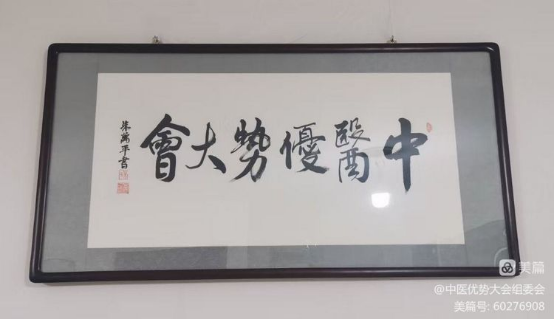 中醫優勢大會
朱瀉平書
美篇
@中医优势大会组委会
美篇号: 60276908